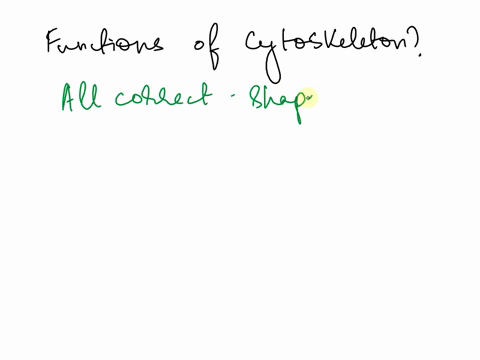 Functions of Cytoskeleton?
All correct - Shap